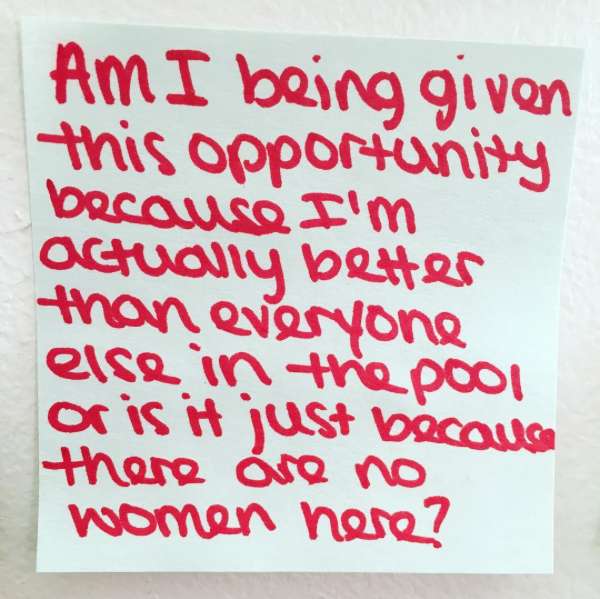 Am I being given
this opportunity
because I'm
actually better
than everyone
else in the pool
or is it just because
there are no
women here?